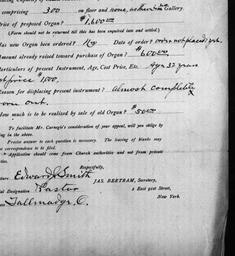 comprising 300 on floor and none, neither in Gallery.
Price of proposed Organ? $1,600.00
(Form should not be returned till this has been inquired into and settled.)
Has new Organ been ordered? Date of order? order not placed yet.
Amount already raised toward purchase of Organ? $600.00
Particulars of present Instrument, Age, Cost Price, Etc. Age 32 years
cost price $1100.
Reason for displacing present instrument? Almost completely
worn out.
How much is to be realized by sale of old Organ? $50.00
To facilitate Mr. Carnegie's consideration of your appeal, will you oblige by
filling in the above.
Precise answer to each question is necessary. The leaving of blanks may
correspondence to be filed.
Application should come from Church authorities and not from private
parties.
Respectfully,
JAS. BERTRAM, Secretary,
Edward J. Smith
Official Designation Pastor
2 East 91st Street,
New York.
Tallmadge, O.